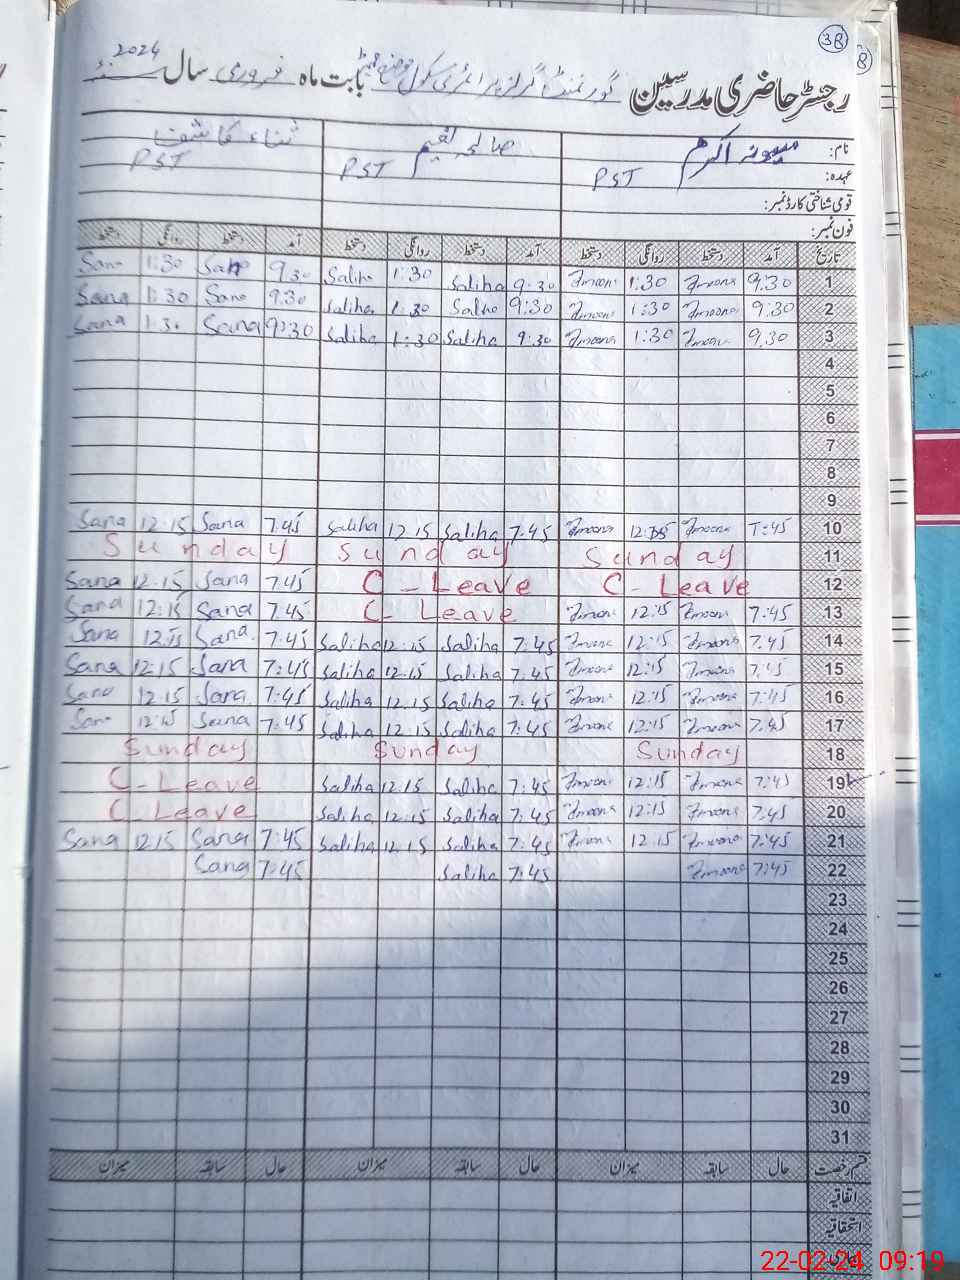 38
رجسٹر حاضری مدرسین گورنمنٹ گرلز پرائمری سکول بابت ماہ فروری سال 2024
نام: میمونہ اکرم صالحہ نعیم ثناء کاشف
عہدہ: PST PST PST
قومی شناختی کارڈ نمبر:
فون نمبر:
تاریخ آمد دستخط روانگی دستخط آمد دستخط روانگی دستخط آمد دستخط روانگی دستخط
1 9:30 1:30 9:30 Saliha 1:30 Saliha 9:30 Sana 1:30 Sana
2 9:30 1:30 9:30 Saliha 1:30 Saliha 9:30 Sana 1:30 Sana
3 9:30 1:30 9:30 Saliha 1:30 Saliha 9:30 Sana 1:30 Sana
4
5
6
7
8
9
10 7:45 7:45 Saliha 12:15 Saliha 7:45 Sana 12:15 Sana
11 Sunday Sunday Sunday
12 C-Leave C-Leave 7:45 Sana 12:15 Sana
13 7:45 12:15 C-Leave 7:45 Sana 12:15 Sana
14 7:45 12:15 7:45 Saliha 12:15 Saliha 7:45 Sana 12:15 Sana
15 7:45 12:15 7:45 Saliha 12:15 Saliha 7:45 Sana 12:15 Sana
16 7:45 12:15 7:45 Saliha 12:15 Saliha 7:45 Sana 12:15 Sana
17 7:45 12:15 7:45 Saliha 12:15 Saliha 7:45 Sana 12:15 Sana
18 Sunday Sunday Sunday
19 7:45 12:15 7:45 Saliha 12:15 Saliha C-Leave
20 7:45 12:15 7:45 Saliha 12:15 Saliha C-Leave
21 7:45 12:15 7:45 Saliha 12:15 Saliha 7:45 Sana 12:15 Sana
22 7:45 7:45 Saliha 7:45 Sana
23
24
25
26
27
28
29
30
31
قسم رخصت حال سابقہ میزان حال سابقہ میزان حال سابقہ میزان
اتفاقیہ
استحقاقیہ
22-02-24 09:19